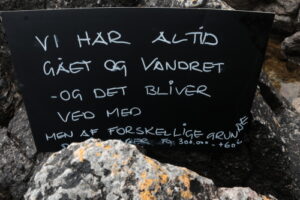 VI HAR ALTID
GÅET OG VANDRET
- OG DET BLIVER
VED MED
MEN AF FORSKELLIGE GRUNDE